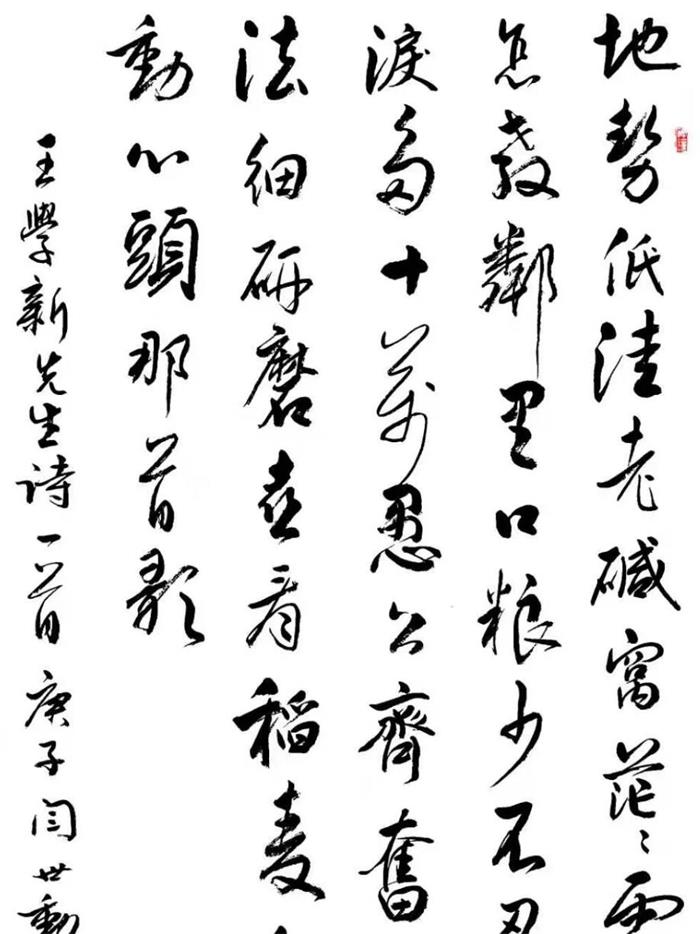 地勢低洼老碱窩茫〻雨
怎教鄰里口粮少不忍
淚多十萬愚公齊奮
法細研磨喜看稻麦
動心頭那首歌
王學新先生诗一首庚子闫世勳